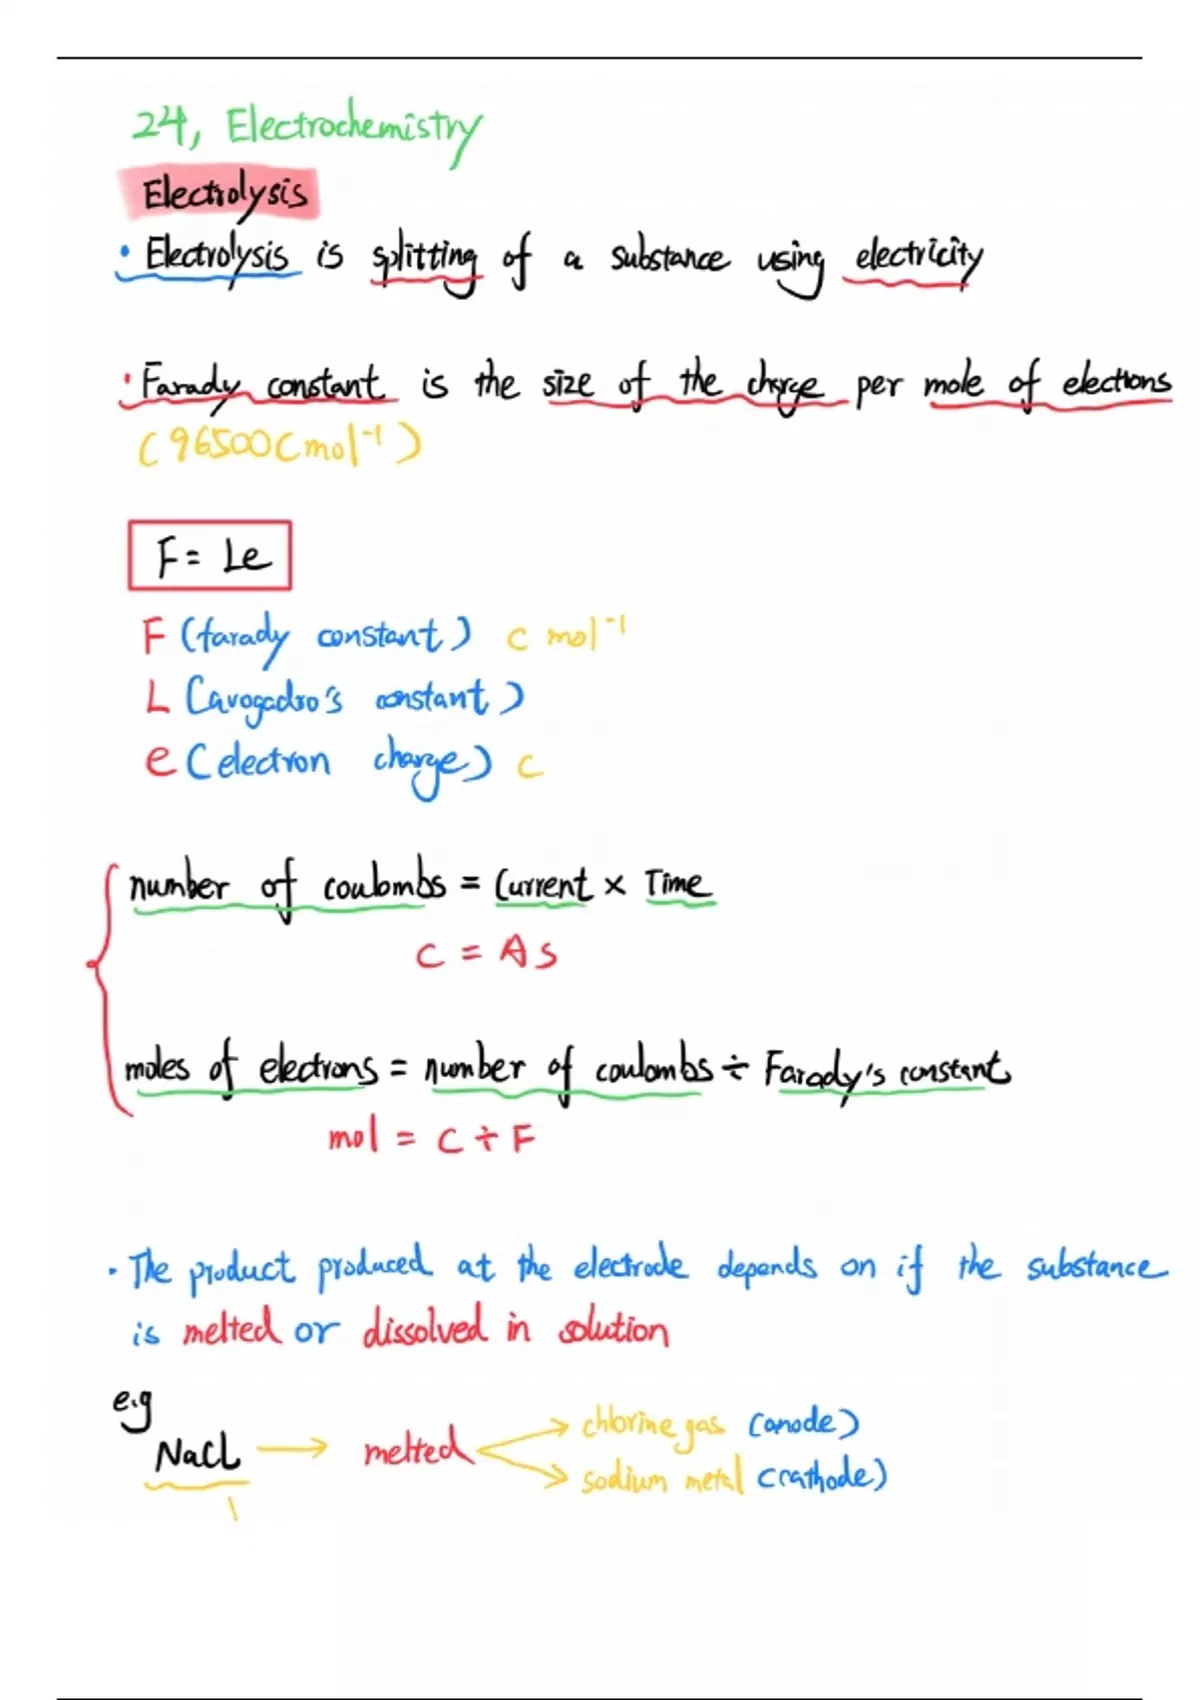 24, Electrochemistry
Electrolysis
• Electrolysis is splitting of a substance using electricity
• Farady constant is the size of the charge per mole of electrons
(96500C mol⁻¹)
F = Le
F (farady constant) C mol⁻¹
L (avogadro's constant)
e (electron charge) C
number of coulombs = Current × Time
C = A s
moles of electrons = number of coulombs ÷ Farady's constant
mol = C ÷ F
• The product produced at the electrode depends on if the substance
is melted or dissolved in solution
e.g
NaCl → melted
chlorine gas (anode)
sodium metal (cathode)